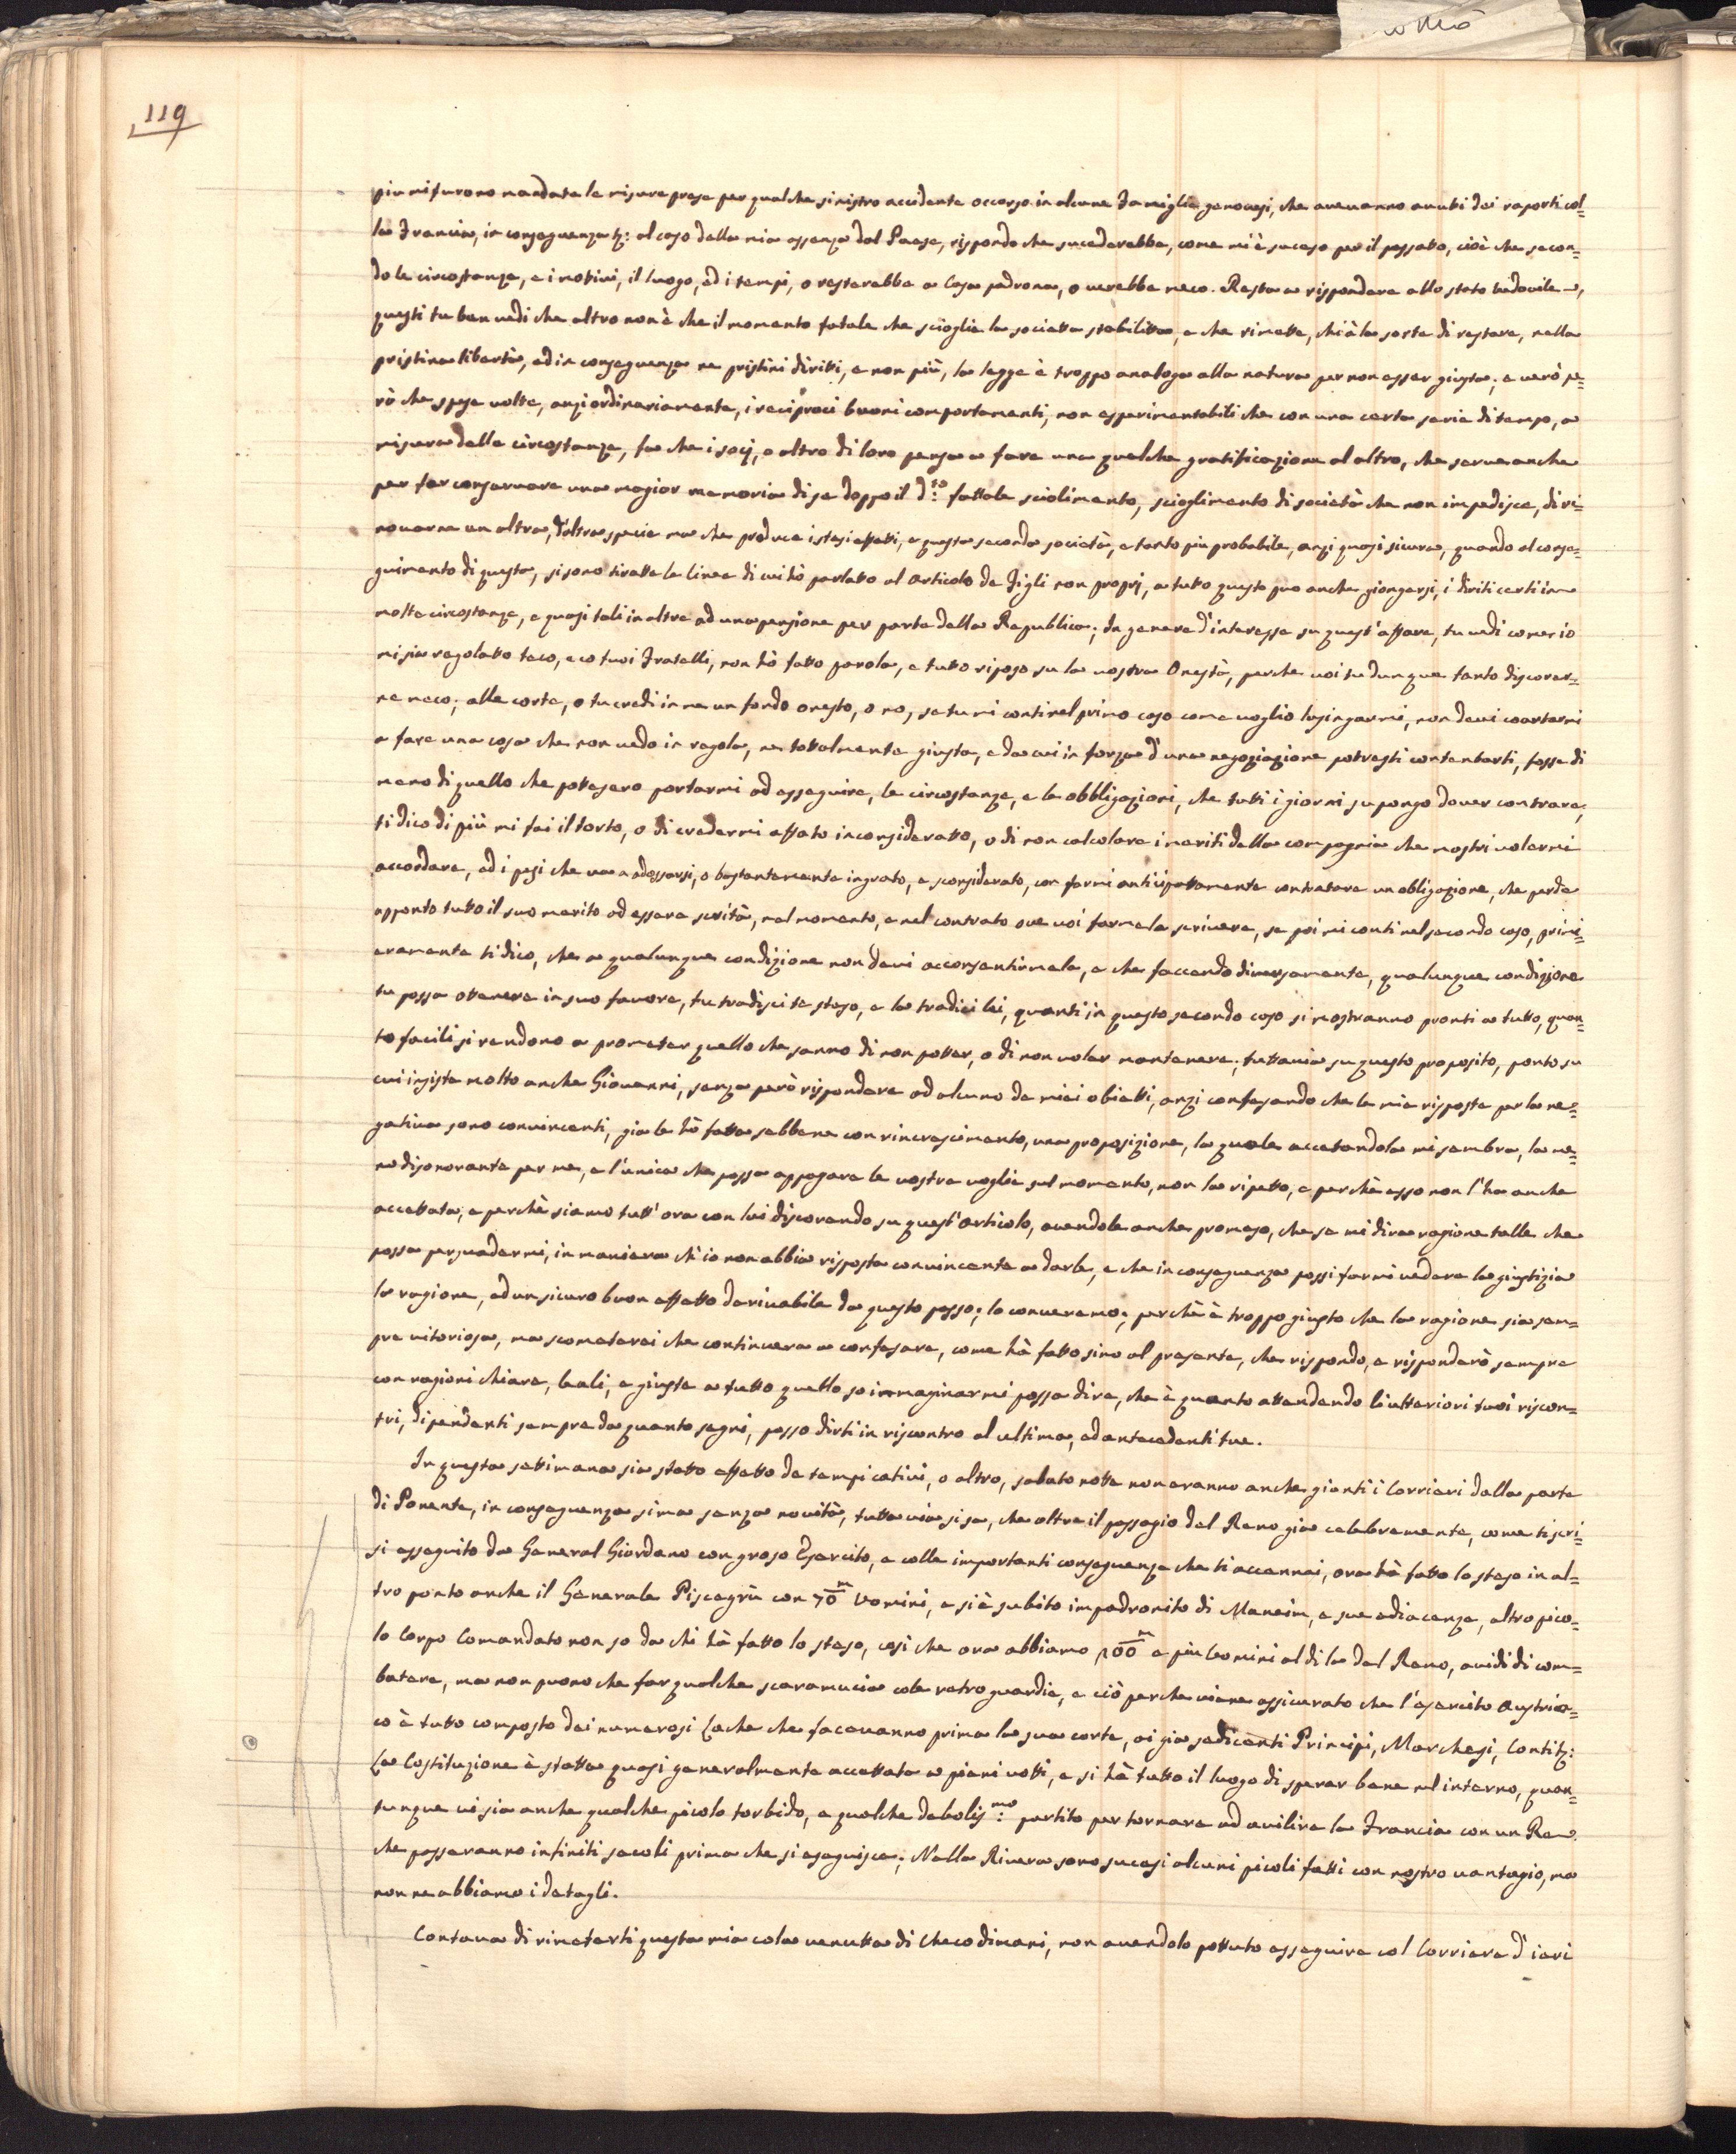 com̃o
119
piu mi furono mandate le misure prese per qualche sinistro accidente occorso in alcune Famiglie genovesi, che avevanno avuti dei raporti col=
la Francia, in conseguenza &: al caso della mia assenza dal Paese, rispondo che sucederebbe, come mi è suceso per il passatto, cioè che secon=
do le circostanze, e i motivi, il luogo, ed i tempi, o resterebbe a Casa padrona, o verebbe meco. Resta a rispondere allo stato vedovile,
questi tu ben vedi che altro non è che il momento fatale che scioglie la societta stabilitta, e che rimette, chi à la sorte di restare, nella
pristina libertà, ed in conseguenza ne pristini diritti, e non più, la legge è troppo analoga alla natura per non esser giusta; e verò pe=
rò che spese volte, anzi ordinariamente, i reciproci buoni comportamenti, non esperimentabili che con una certa serie di tempo, a
misura delle circostanze, fa che i socij, o altro di loro pensa a fare una qualche gratificazione al altro, che serve anche
per far conservare una magior memoria di se doppo il d:to fattale sciolimento, scioglimento di società che non impedisce, di ri=
novarne un altra, d'altra specie ma che produce i stesi effetti, e questa seconda società, e tanto piu probabile, anzi quasi sicura, quando al conse=
guimento di questa, si sono tiratte le linee di cui hò parlatto al articolo de Figli non proprj, a tutto questo puo anche giongersi, i diritti certi in
molte circostanze, e quasi tali in altre ad una pensione per parte della Republica; In genere d'interesse su quest'affare, tu vedi come io
mi sia regolatto teco, e co tuoi Fratelli, non hò fatto parola, e tutto riposo su la vostra Onestà, perche voi tu dunque tanto discorer=
ne meco; alle corte, o tu credi in me un fondo onesto, o no, se tu mi conti nel primo caso come voglio lusingarmi, non devi coartarmi
a fare una cosa che non vedo in regola, ne tottalmente giusta, e da cui in forza d'una negoziazione potresti contentarti, fosse di
meno di quello che pottesero portarmi ad esseguire, le circostanze, e le obbligazioni, che tutti i giorni supongo dover contrare;
ti dico di più mi fai il torto, o di credermi affato inconsideratto, o di non calcolare i meriti della compagnia che mostri volermi
accordare, ed i pesi che va a adossarsi, o bastantemente ingrato, e sconsiderato, con farmi anticipattamente contratare un obligazione, che perde
apponto tutto il suo merito ad essere scrità, nel momento, e nel contrato ove voi farmela scrivere, se poi mi conti nel secondo caso, primi=
eramente ti dico, che a qualunque condizione non devi acconsentirmela, e che faccendo diversamente, qualunque condizione
tu possa ottenere in suo favore, tu tradisci te steso, e la tradici lei, quanti in questo secondo caso si mostranno pronti a tutto, quan=
to facili si rendono a prometer quello che sanno di non potter, o di non voler mantenere; tuttavia su questo proposito, ponto su
cui insiste molto anche Giovanni, senza però rispondere ad alcuno de miei obietti, anzi confesando che le mie risposte per la ne=
gativa sono convincenti, gia le hò fatta sebbene con rincrescimento, una proposizione, la quale accetandola mi sembra, la me=
no disonorante per me, e l'unica che possa appagare le vostre voglie sul momento, non la ripetto, e perchè esso non l'ha anche
accettata; e perchè siamo tutt'ora con lui discorendo su quest'articolo, avendole anche promeso, che se mi dira ragione talle che
possa persuadermi, in maniera ch'io non abbia risposta convincente a darle, e che in conseguenza possi farmi vedere la giustizia
la ragione, ed un sicuro buon effetto derivabile da questo passo; lo converemo; perchè è troppo giusto che la ragione sia sem=
pre vitoriosa, ma scometerei che continuera a confesare, come hà fatto sino al presente, che rispondo, e risponderò sempre
con ragioni chiare, leali, e giuste a tutto quello so immaginarmi possa dire, che è quanto attendendo li ulteriori tuoi riscon=
tri, dipendenti sempre da quanto segni, posso dirti in riscontro al ultima, ed antecedenti tue.
In questa settimana sia statto effetto de tempi cativi, o altro, sabato notte non eranno anche gionti i Corrieri dalla parte
di Ponente, in conseguenza sima senza novità, tutta via si sa, che oltre il passagio del Reno gia celebremente, come ti scri=
si esseguito da General Giordano con groso Esercito, e colle importanti conseguenze che ti accennai, ora hà fatto lo steso in al=
tro ponto anche il Generale Piscegrù con 70m Uomini, e si è subito impadronito di Maneim, e sue adiacenze, altro pico=
lo Corpo Comandato non so da chi hà fatto lo steso, cosi che ora abbiamo 200m e piu Uomini al di la del Reno, avidi di com=
batere, ma non puono che far qualche scaramucia cole retroguardie, e ciò perche viene assicurato che l'esercito Austria=
co è tutto composto dei numerosi Lache che facevanno prima la sua corte, ai gia sedicenti Principi, Marchesi, Conti &:
La Costituzione è statta quasi generalmente accettata a pieni votti, e si hà tutto il luogo di sperar bene nel interno, quan=
tunque vi sia anche qualche picolo torbido, e qualche debolis:mo partito per tornare ad avilire la Francia con un Re
che passeranno infiniti secoli prima che si eseguisca; Nella Rivera sono sucesi alcuni picoli fatti con nostro vantagio, ma
non ne abbiamo i detagli.
Contava di rimeterti questa mia cola venutta di Checo dimani, non avendolo pottuto esseguire col Corriere d'ieri